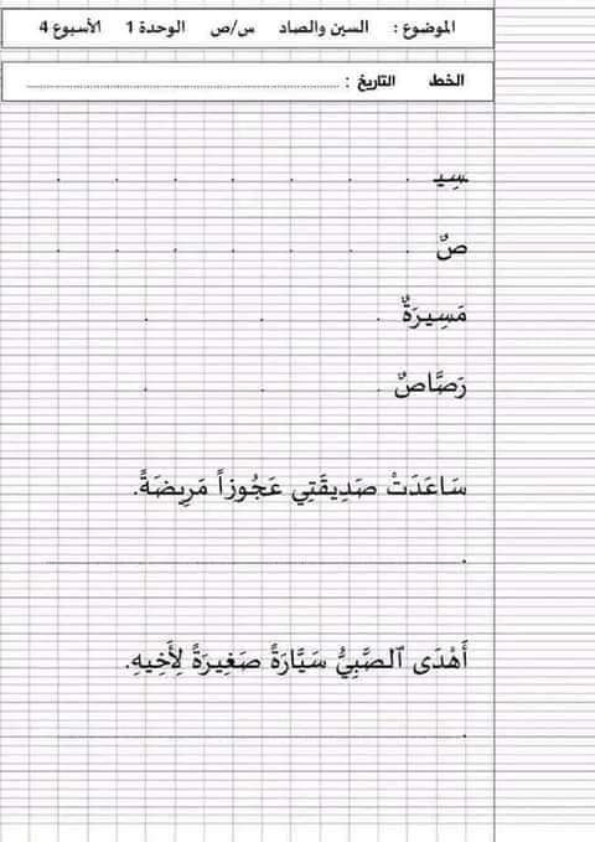 الموضوع : السين والصاد س/ص الوحدة 1 الأسبوع 4
الخط التاريخ :
سِيـ
صٌ
مَسِيرَةٌ
رَصَّاصٌ
سَاعَدَتْ صَدِيقَتِي عَجُوزاً مَرِيضَةً.
أَهْدَى ٱلصَّبِيُّ سَيَّارَةً صَغِيرَةً لِأَخِيهِ.